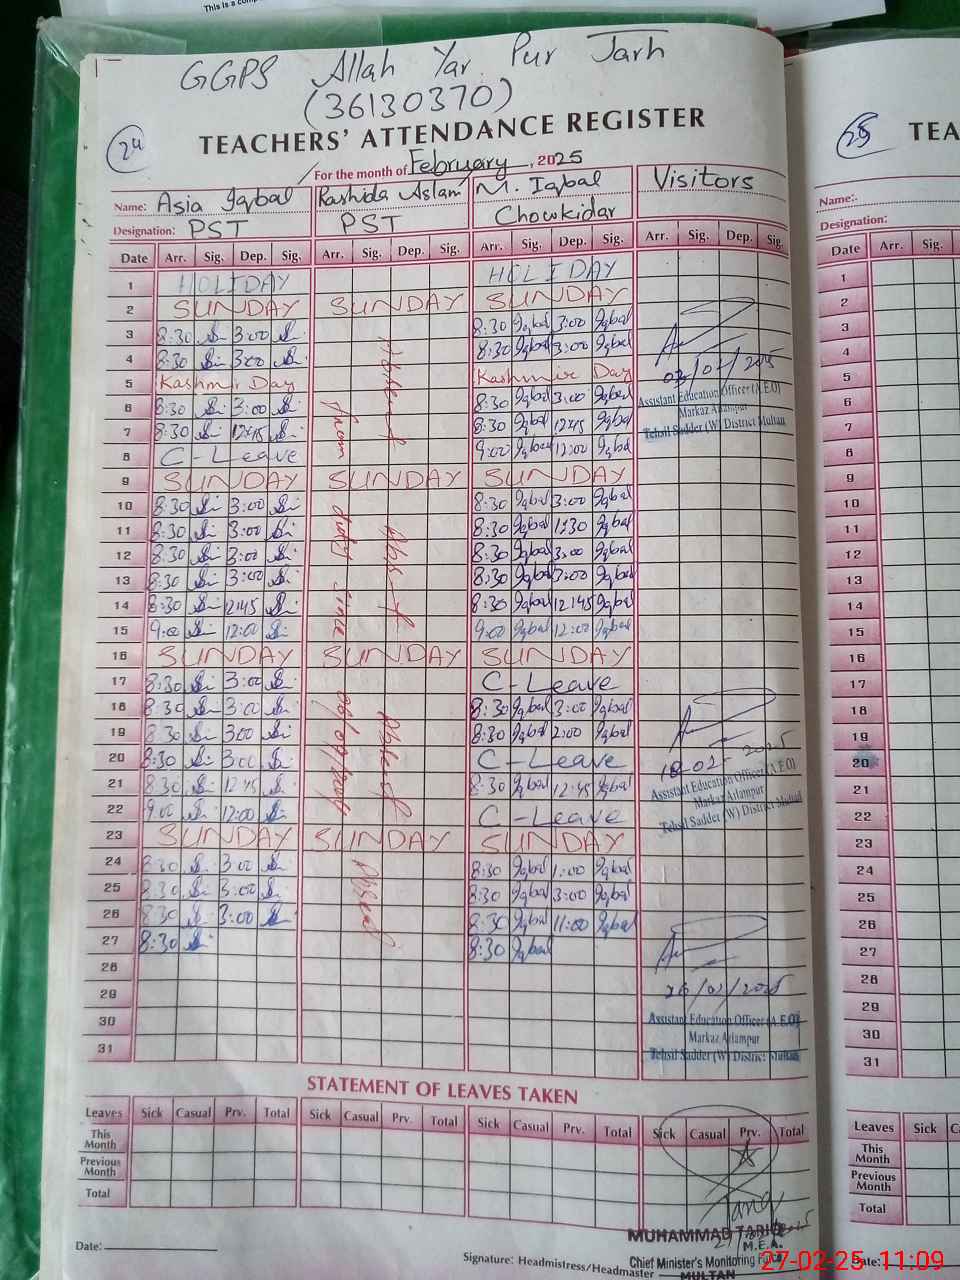 This is a comp
GGPS Allah Yar Pur Jarh
(36130370)
24
TEACHERS' ATTENDANCE REGISTER
For the month of February, 2025
Name: Asia Iqbal Rashida Aslam M. Iqbal Visitors
Designation: PST PST Chowkidar
Date Arr. Sig. Dep. Sig. Arr. Sig. Dep. Sig. Arr. Sig. Dep. Sig. Arr. Sig. Dep. Sig.
1 HOLIDAY HOLIDAY
2 SUNDAY SUNDAY SUNDAY
3 8:30 3:00 8:30 Iqbal 3:00 Iqbal
4 8:30 3:00 8:30 Iqbal 3:00 Iqbal
5 Kashmir Day Kashmir Day
6 8:30 3:00 8:30 Iqbal 3:00 Iqbal
7 8:30 12:45 8:30 Iqbal 12:45 Iqbal
8 C-Leave 9:00 Iqbal 12:00 Iqbal
9 SUNDAY SUNDAY SUNDAY
10 8:30 3:00 8:30 Iqbal 3:00 Iqbal
11 8:30 3:00 8:30 Iqbal 1:30 Iqbal
12 8:30 3:00 8:30 Iqbal 3:00 Iqbal
13 8:30 3:00 8:30 Iqbal 3:00 Iqbal
14 8:30 12:45 8:30 Iqbal 12:45 Iqbal
15 9:00 12:00 9:00 Iqbal 12:00 Iqbal
16 SUNDAY SUNDAY SUNDAY
17 8:30 3:00 C-Leave
18 8:30 3:00 8:30 Iqbal 3:00 Iqbal
19 8:30 3:00 8:30 Iqbal 2:00 Iqbal
20 8:30 3:00 C-Leave
21 8:30 12:45 8:30 Iqbal 12:45 Iqbal
22 9:00 12:00 C-Leave
23 SUNDAY SUNDAY SUNDAY
24 8:30 3:00 8:30 Iqbal 1:00 Iqbal
25 8:30 3:00 8:30 Iqbal 3:00 Iqbal
26 8:30 3:00 8:30 Iqbal 11:00 Iqbal
27 8:30 8:30 Iqbal
28
29
30
31
Absent
from
duty since
Absent
Absent
Assistant Education Officer (A.E.O)
Markaz Ailampur
Tehsil Sadder (W) District Multan
18-02-2025
Assistant Education Officer (A.E.O)
Markaz Ailampur
Tehsil Sadder (W) District Multan
26/02/2025
Assistant Education Officer (A.E.O)
Markaz Ailampur
Tehsil Sadder (W) District Multan
STATEMENT OF LEAVES TAKEN
Leaves Sick Casual Prv. Total Sick Casual Prv. Total Sick Casual Prv. Total Sick Casual Prv. Total
This Month
Previous Month
Total
Date:
Signature: Headmistress/Headmaster
MUHAMMAD TARIQ
M.E.A.
Chief Minister's Monitoring Force
MULTAN
25
TEA
Name:
Designation:
Date Arr. Sig.
1
2
3
4
5
6
7
8
9
10
11
12
13
14
15
16
17
18
19
20
21
22
23
24
25
26
27
28
29
30
31
Leaves Sick
This Month
Previous Month
Total
Date:
27-02-25 11:09